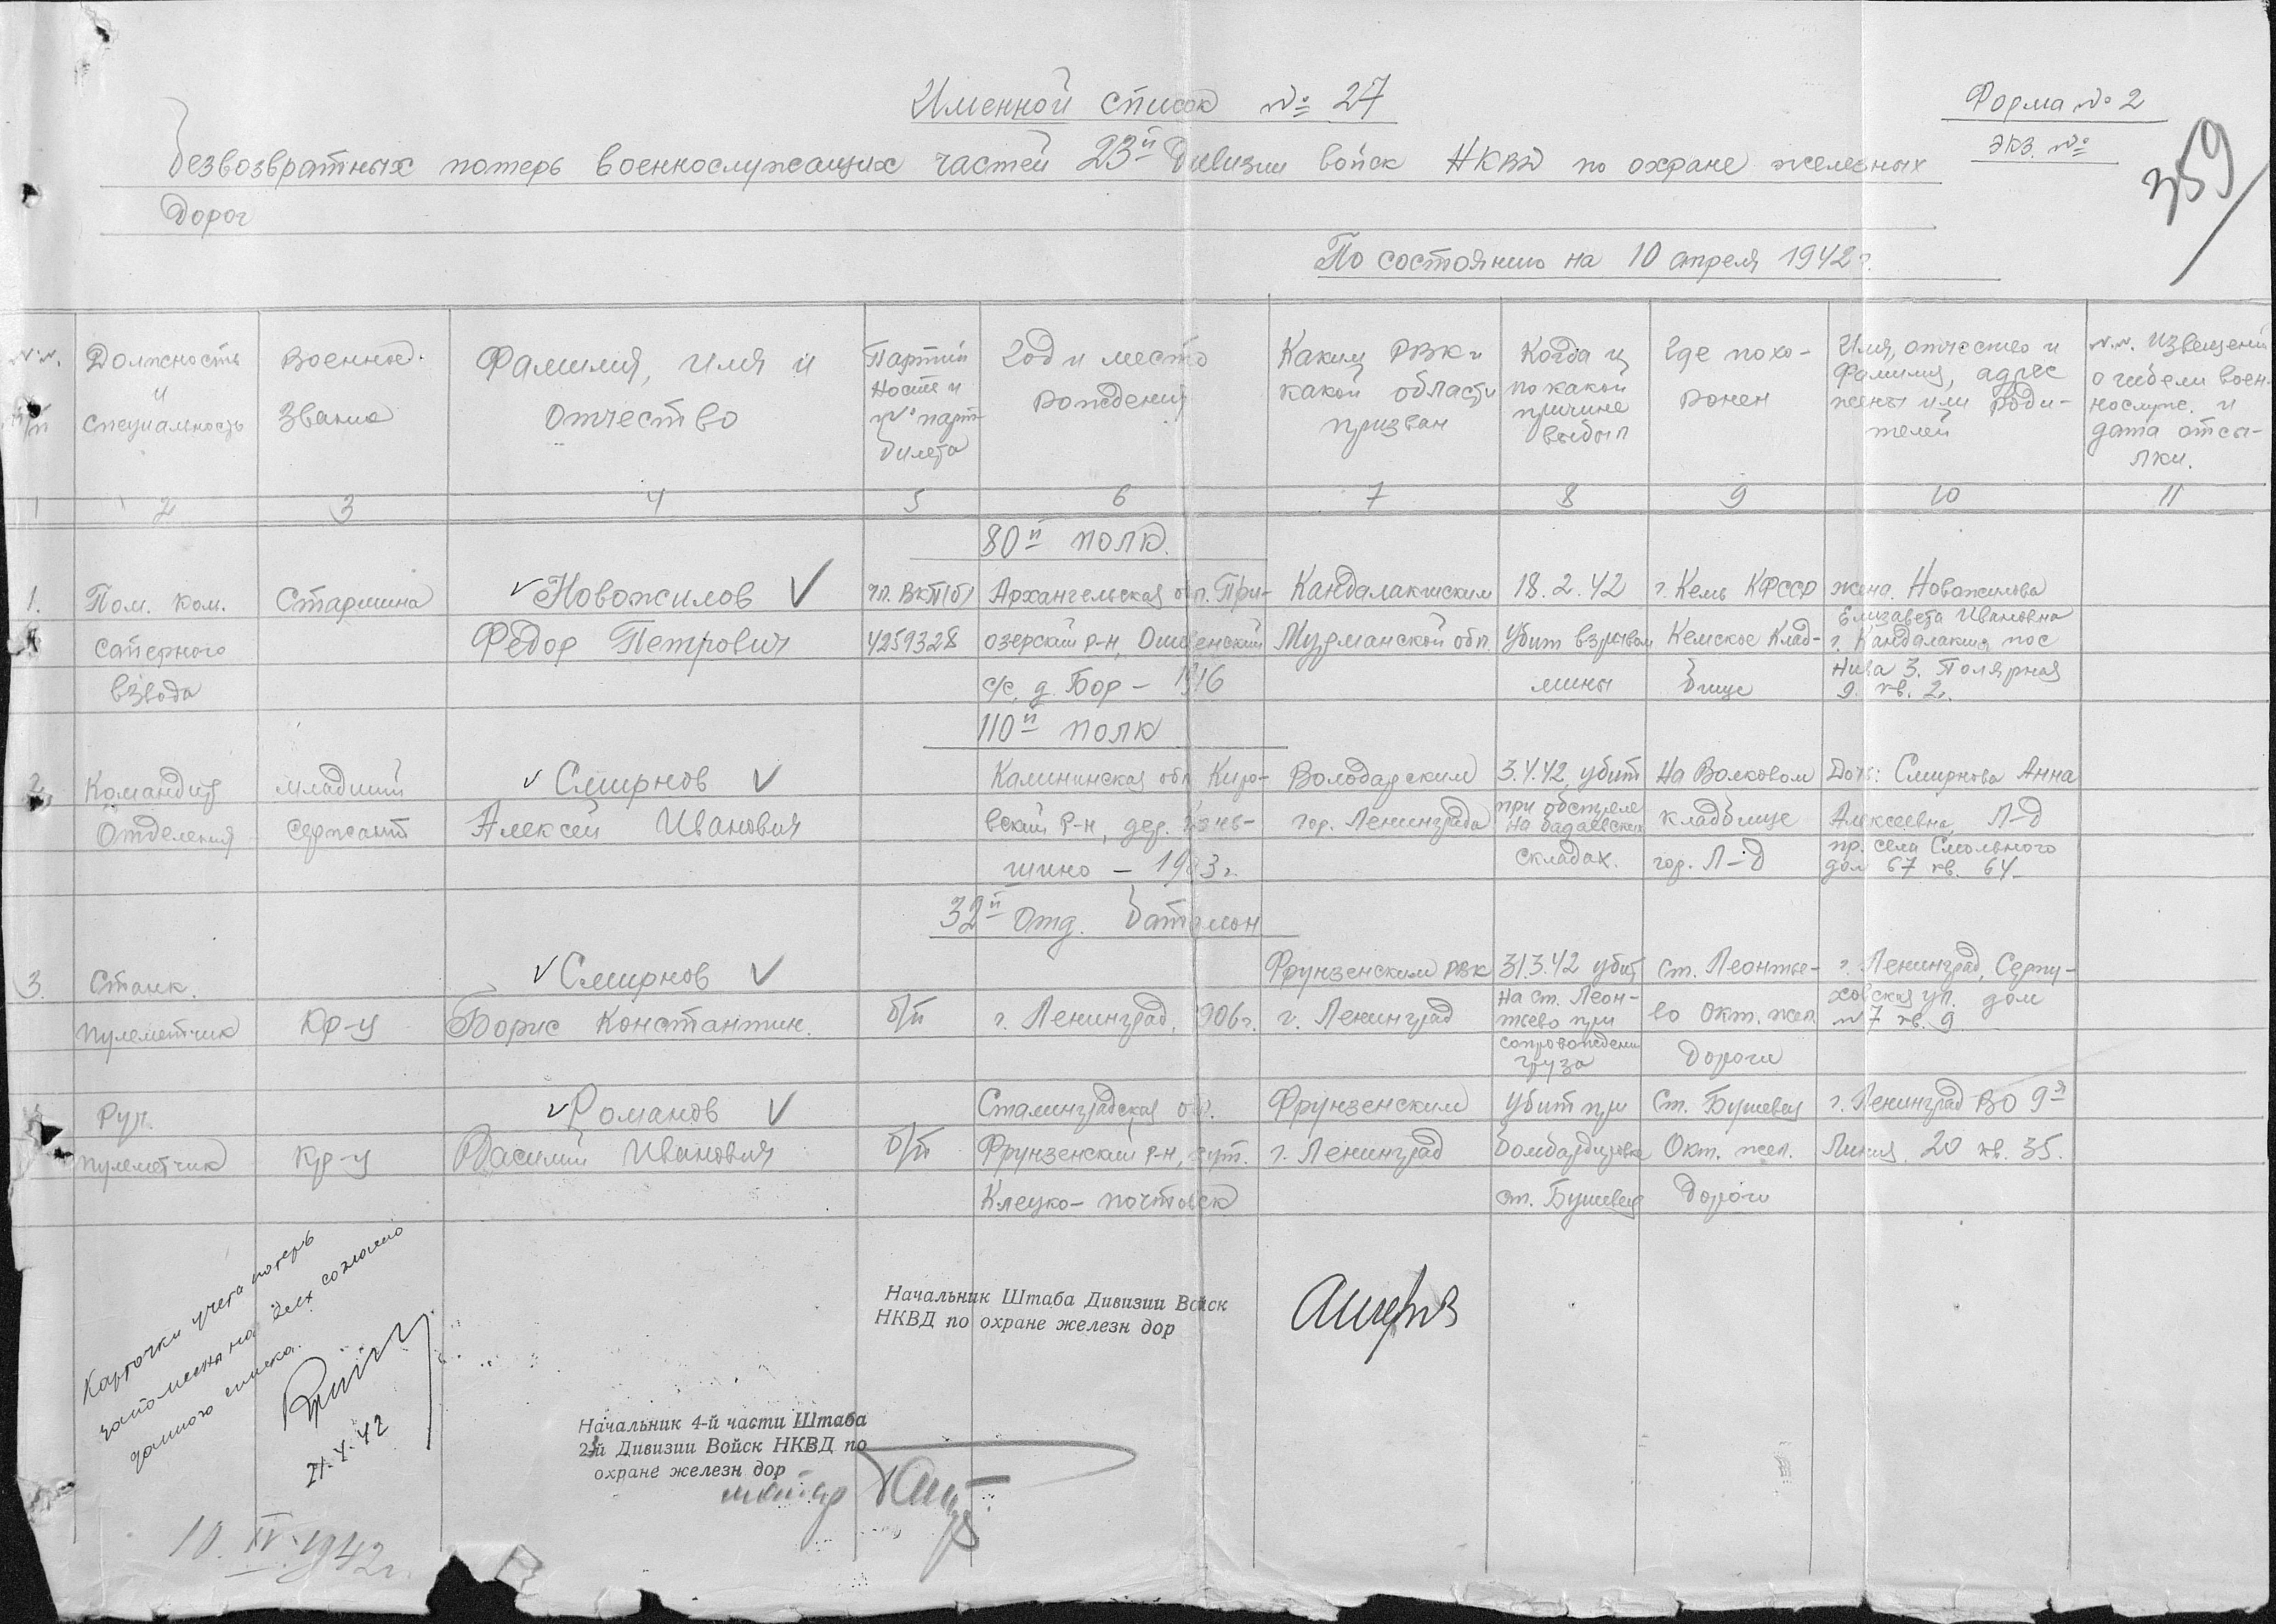 Именной список № 27
Форма № 2
экз. №
359
безвозвратных потерь военнослужащих частей 23й Дивизии войск НКВД по охране железных
дорог
По состоянию на 10 апреля 1942 г.
№.№. п/п
Должность и специальность
Военное звание
Фамилия, имя и отчество
Партийность и № партбилета
Год и место рождения
Каким РВК и какой области призван
Когда и по какой причине выбыл
Где похоронен
Имя, отчество и фамилия, адрес жены или родителей
№.№. извещений о гибели военнослуж. и дата отсылки.
1 2 3 4 5 6 7 8 9 10 11
80й полк.
1. Пом. ком. Старшина Новожилов чл. ВКП(б) Архангельская обл. При- Кандалакшским 18.2.42 г. Кемь КФССР жена. Новожилова
Елизавета Ивановна
саперного Федор Петрович 4259328 озерский р-н, Ошевенский Мурманской обл. Убит взрывом Кемское клад- г. Кандалакша пос
взвода с/с. д. Бор – 1916 мины бище Нива 3. Полярная
9. кв. 2.
110й полк
2. Командир младший Смирнов Калининская обл Киро- Володарским 3.4.42 убит На Волковом Дочь: Смирнова Анна
Отделения сержант Алексей Иванович вский р-н, дер. гор. Ленинграда при обстреле на Бадаевских кладбище Алексеевна, Л-д
шино – складах. гор. Л-д пр. села Смольного
дом 67 кв. 64
32й отд. батальон
3. Станк. Смирнов Фрунзенским РВК 31.3.42 убит ст. Леонтье- г. Ленинград, Серпу-
пулеметчик Кр-ц Борис Константин. б/п г. Ленинград, 1906г. г. Ленинград на ст. Леон- тьево при во Окт. жел. ховская ул. дом
№ 7 кв. 9
сопровождении груза дороги
Руч. Романов Сталинградская об. Фрунзенским Убит при Ст. Бушевец г. Ленинград ВО 9я
пулеметчик Кр-ц Василий Иванович б/п Фрунзенский р-н, хут. г. Ленинград бомбардировке Окт. жел. Линия 20 кв. 35.
Клецко-почтовск ст. Бушевец дороги
Карточки учета потерь
заполнены на всех согласно
данного списка.
21.4.42
Начальник Штаба Дивизии Войск
НКВД по охране железн дор
Начальник 4-й части Штаба
23й Дивизии Войск НКВД по
охране железн дор
10.IV.1942г.